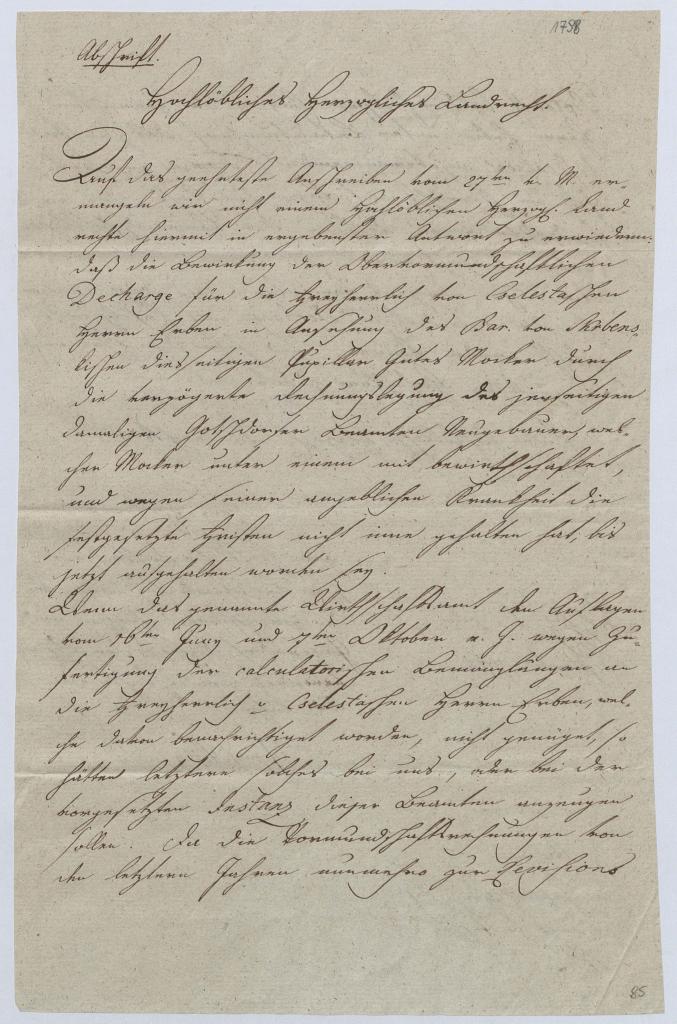 1798
Abschrift.
Hochlöbliches Herzogliches Landrecht.
Auf das geehrteste Anschreiben vom 27ten v. M. er-
mangeln wir nicht einem Hochlöblichen Herzogl. Land
rechte hiermit in ergebenster Antwort zu erwiedern:
daß die Bewirkung der Obervormundschaftlichen
Decharge für die Freyherrlich von Cselestaschen
Herrn Erben in Ansehung des Bar. von Skrbens-
kischen diesseitigen Pupillar Gutes Mocker durch
die verzögerte Rechnungslegung des jenseitigen
damaligen Gotschdorfer Beamten Neugebauer, wel-
cher Mocker unter einem mit bewirthschaftet,
und wegen seiner angeblichen Krankheit die
festgesetzte Fristen nicht inne gehalten hat, bis
jetzt aufgehalten worden sey.
Wenn das genannte Wirthschaftsamt den Auflagen
vom 16ten Juny und 7ten Oktober v. J. wegen Zu-
fertigung der calculatorischen Bemänglungen an
die Freyherrlich v Cselestaschen Herrn Erben, wel-
che davon benachrichtiget worden, nicht genüget, so
hätten letztere solches bei uns, oder bei der
vorgesetzten Instanz dieser Beamten anzeigen
sollen. Da die Vormundschaftsrechnungen von
den letztern Jahren nunmehro zur Revisions
85